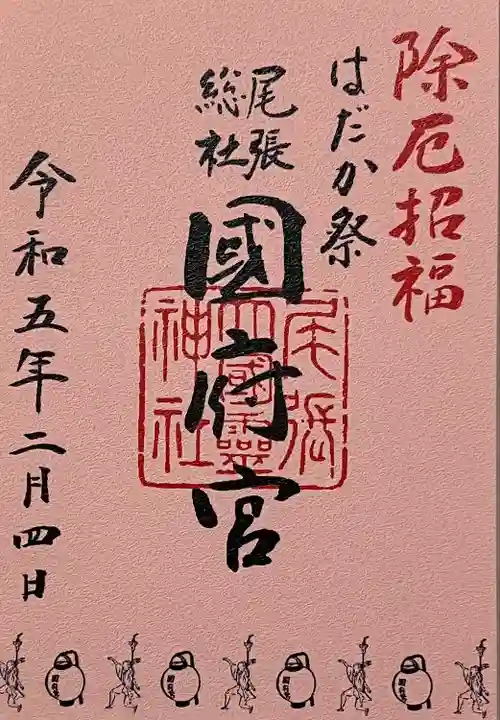 除厄招福
はだか祭
尾張
総社
國府宮
尾張
大國霊
神社
令和五年二月四日